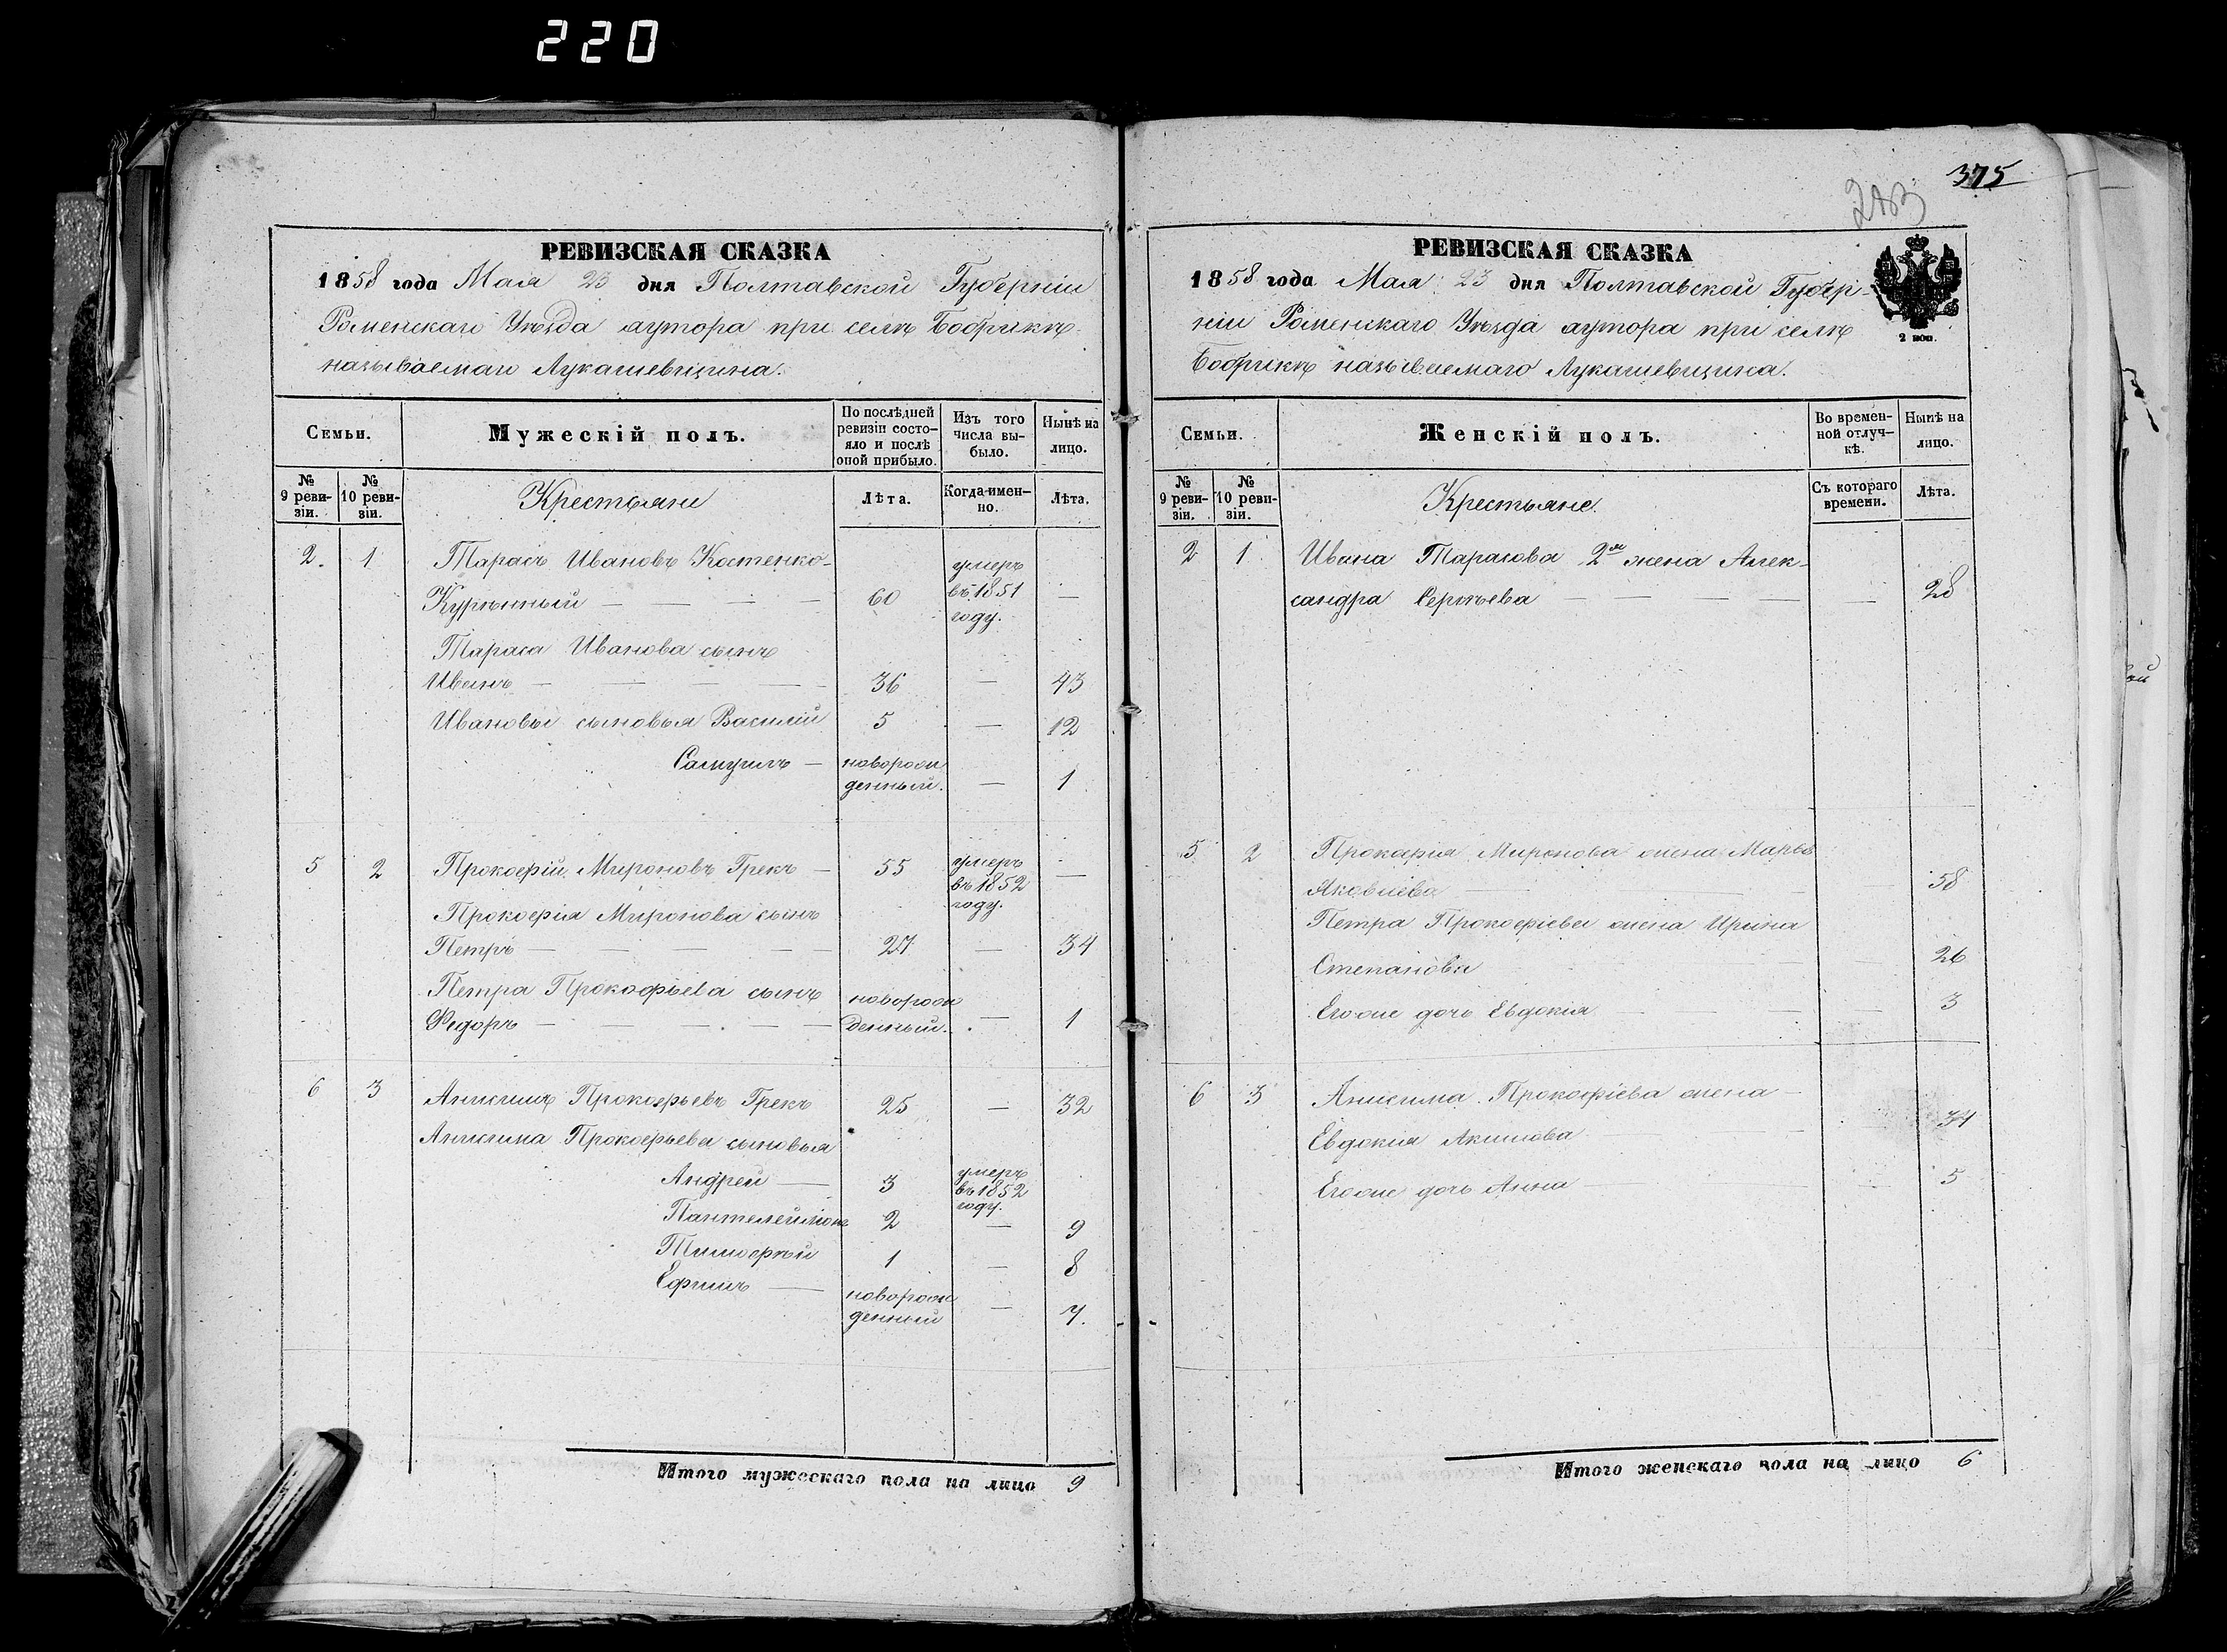 220
РЕВИЗСКАЯ СКАЗКА
1858 года Мая 23 дня Полтавской Губерніи
Роменскаго Уѣзда хутора при селѣ Бобрикѣ
называемаго Лукашевщина.
Семьи.
Мужескій полъ.
По послѣдней ревизіи состояло и послѣ оной прибыло.
Изъ того числа выбыло.
Нынѣ на лицо.
№ 9 ревизіи.
№ 10 ревизіи.
Крестьяне
Лѣта.
Когда-именно.
Лѣта.
2. 1 Тарасъ Ивановъ Костенко-
Курѣнный — — — — 60 умеръ въ 1851 году. —
Тараса Иванова сынъ
Иванъ — — — — 36 — 43
Ивановы сыновья Василій 5 — 12
Самуилъ — новорожденный. — 1
5 2 Прокофій Мироновъ Грекъ — 55 умеръ въ 1852 году. —
Прокофія Миронова сынъ
Петръ — — — — 27 — 34
Петра Прокофьева сынъ
Федоръ — — — — новорожденный. — 1
6 3 Анисимъ Прокофьевъ Грекъ 25 — 32
Анисима Прокофьева сыновья
Андрей — 3 умеръ въ 1852 году.
Пантелеймонъ 2 — 9
Тимофѣй 1 — 8
Ефимъ — новорожденный — 7.
Итого мужескаго пола на лицо 9
375
РЕВИЗСКАЯ СКАЗКА
1858 года Мая 23 дня Полтавской Губер-
ніи Роменскаго Уѣзда хутора при селѣ
Бобрикѣ называемаго Лукашевщина.
2 коп.
Семьи.
Женскій полъ.
Во временной отлучкѣ.
Нынѣ на лицо.
№ 9 ревизіи.
№ 10 ревизіи.
Крестьяне.
Съ котораго времени.
Лѣта.
2 1 Ивана Тарасова 2я жена Алек-
сандра Сергѣева — — — — — 28
5 2 Прокофія Миронова жена Марья
Яковлева — — — 58
Петра Прокофіева жена Ирина
Степанова — — 26
Егоже дочь Евдокія — — — 3
6 3 Анисима Прокофіева жена —
Евдокія Акимова — — 34
Егоже дочь Анна — — — 5
Итого женскаго пола на лицо 6